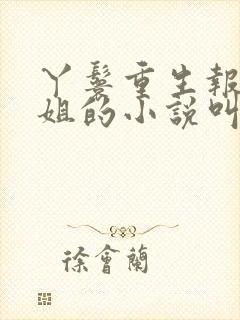 丫鬟重生報
姐的小說叫
徐會蘭